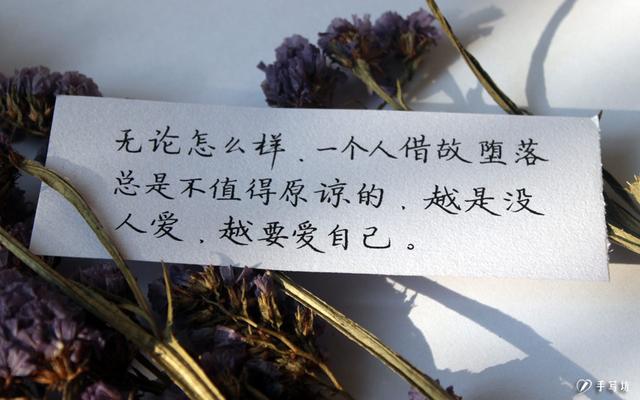 无论怎么样、一个人借故堕落
总是不值得原谅的、越是没
人爱、越要爱自己。
手写坊